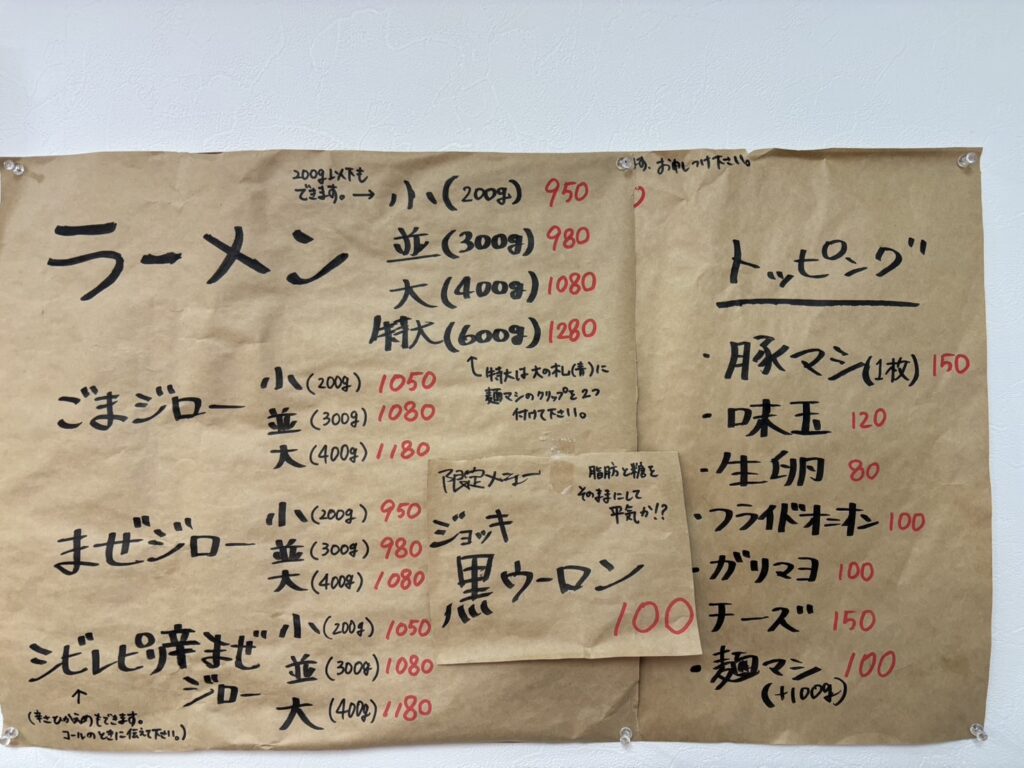 200g以下も
できます。→
ラーメン
小(200g) 950
並(300g) 980
大(400g) 1080
特大(600g) 1280
特大は大の札(青)に
麺マシのクリップを2つ
付けて下さい。
ごまジロー
小(200g) 1050
並(300g) 1080
大(400g) 1180
まぜジロー
小(200g) 950
並(300g) 980
大(400g) 1080
シビレピリ辛まぜ
ジロー
小(200g) 1050
並(300g) 1080
大(400g) 1180
(辛さひかえめもできます。
コールのときに伝えて下さい。)
限定メニュー
脂肪と糖を
そのままにして
平気か!?
ジョッキ
黒ウーロン
100
ます、お申しつけ下さい。
トッピング
・豚マシ(1枚) 150
・味玉 120
・生卵 80
・フライドオニオン 100
・ガリマヨ 100
チーズ 150
・麺マシ 100
(+100g)